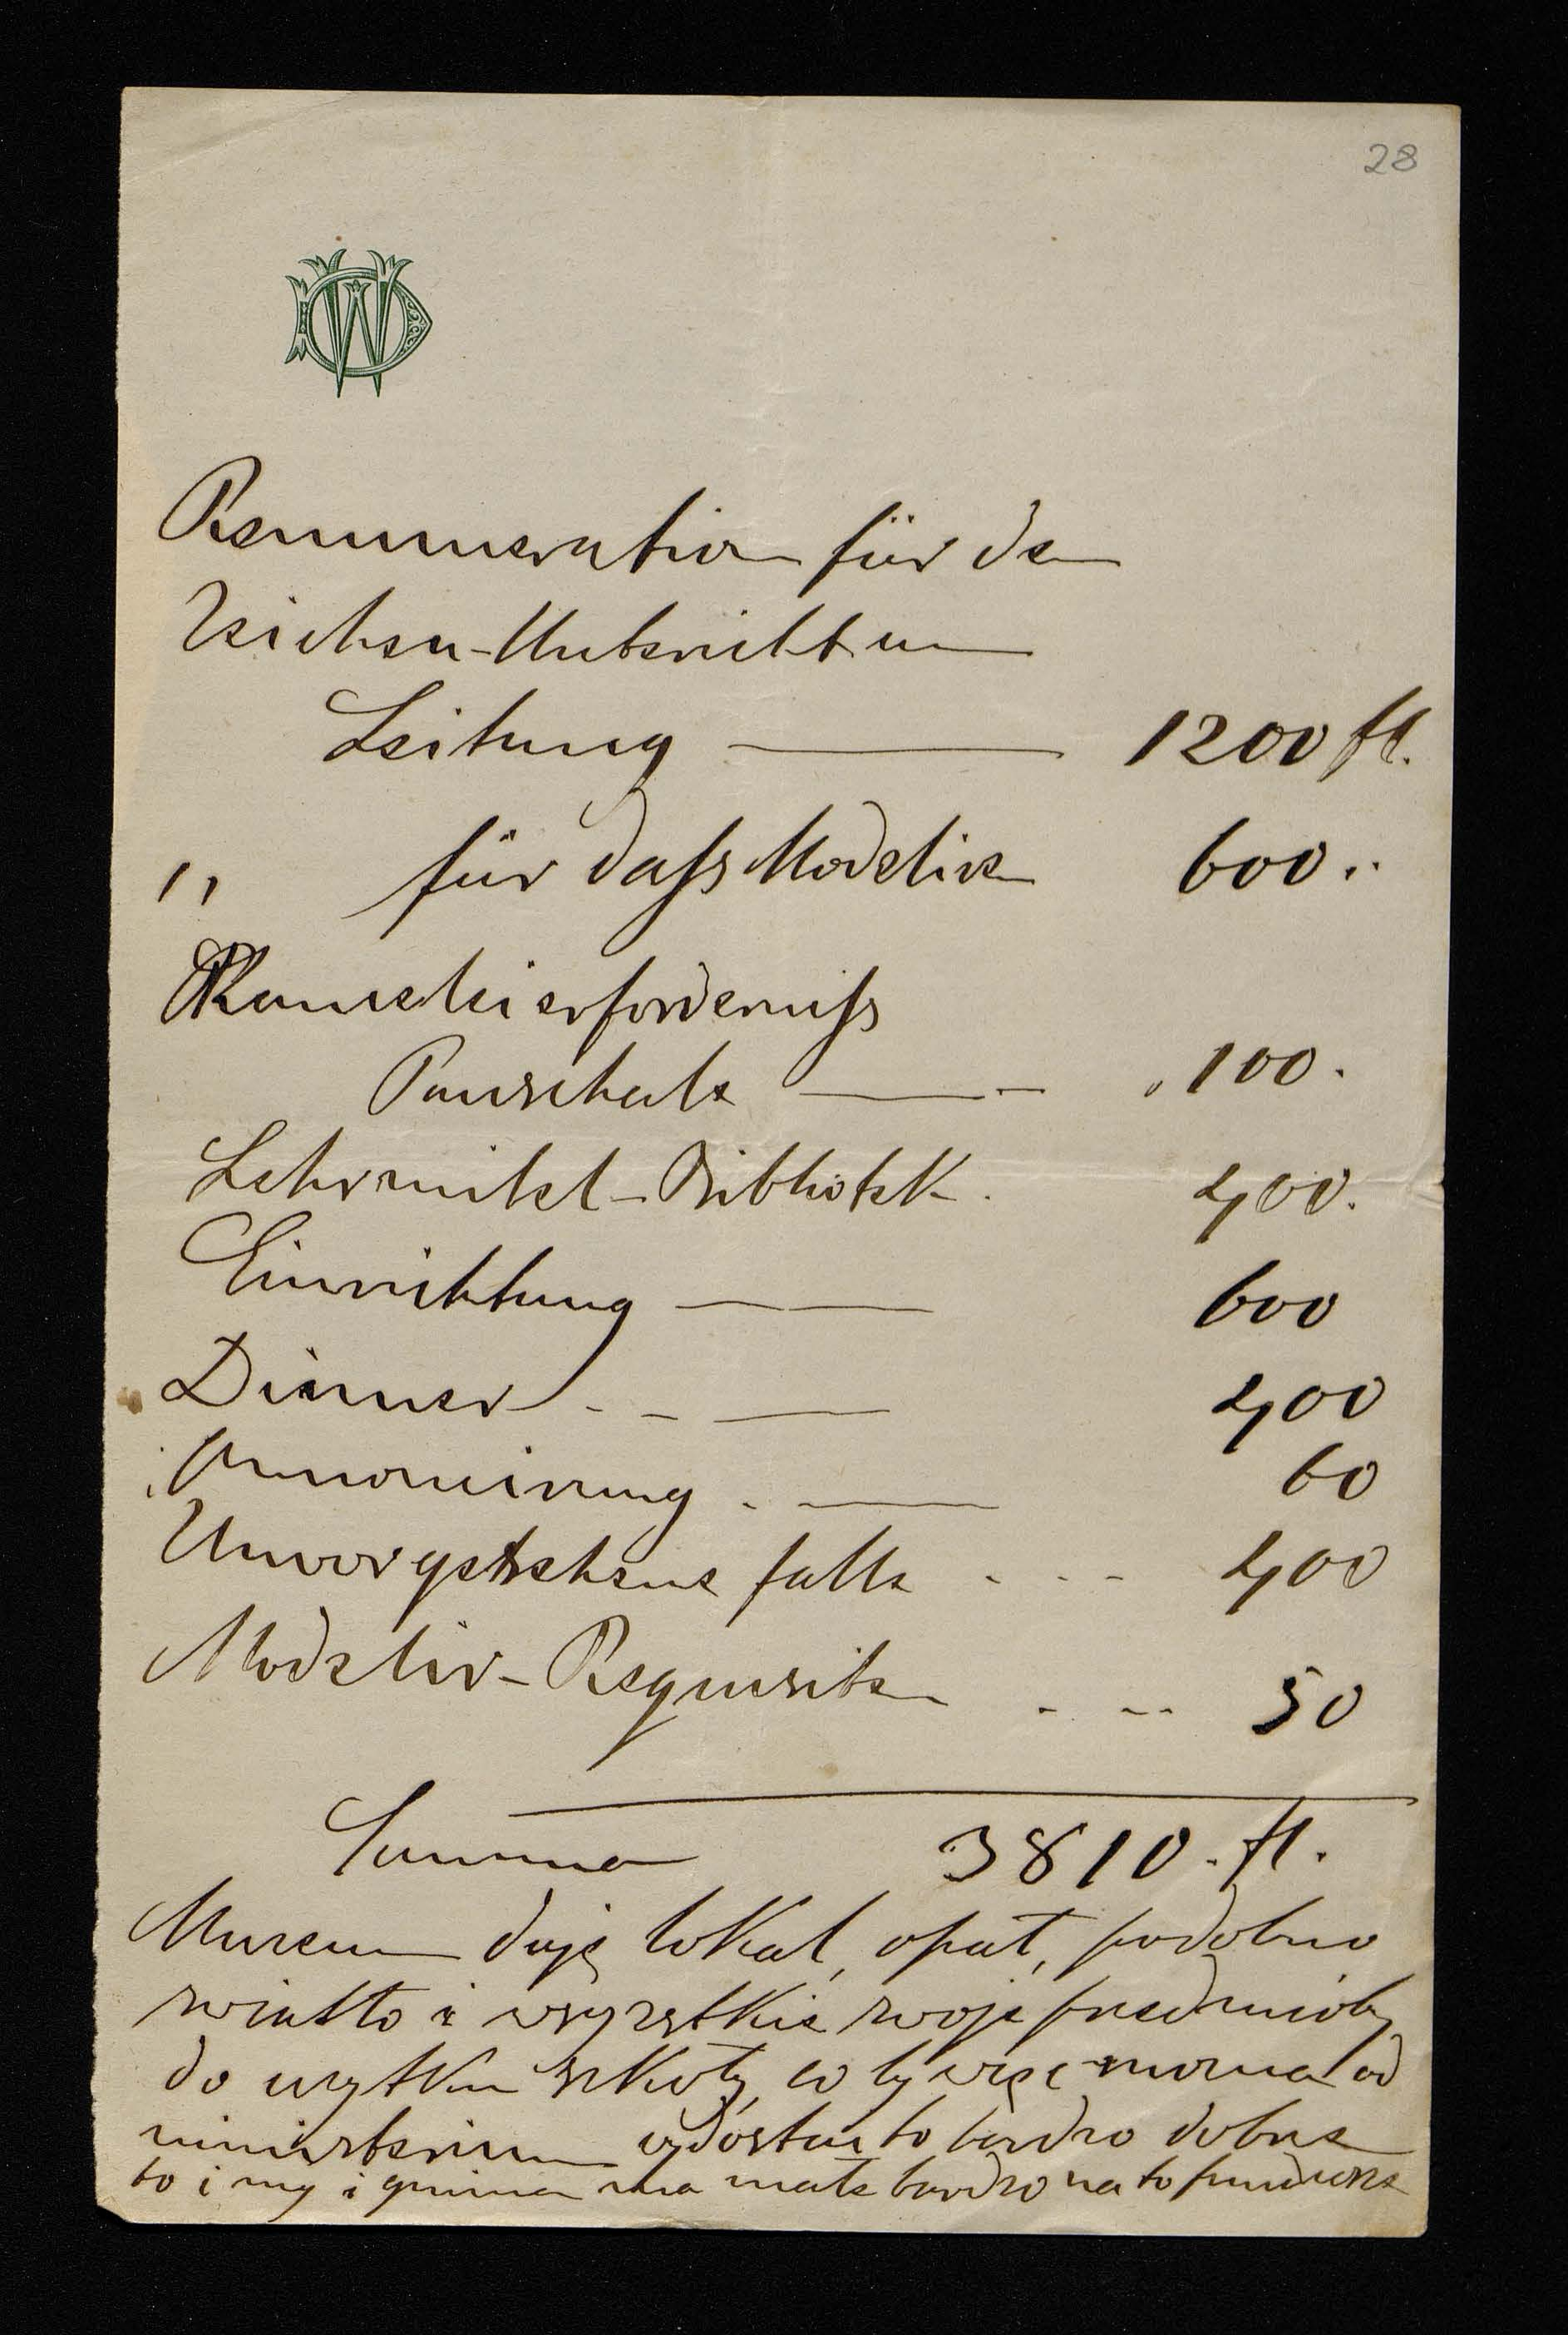 28
WD
Remuneration für den
Zeichen-Unterricht u
Leitung — 1200 fl.
" für daß Modeliren 600 "
Kanzleierforderniß
Pauschale — " 100.
Lehrmittel-Bibliotek. 400.
Einrichtung — 600
Diener - - — 400
Annoncirung . — 60
Unvorgesehene falle - - - 400
Modelir-Requisiten - -- 50
Summa 3810. fl.
Muzeum daje lokal, opał, podobno
swiatło i wszystkie swoje przedmioty
do uzytku szkoły, co by więc mozna od
ministerium wydostać to bardzo dobrze
bo i my i gmina ma małe bardzo na to fundusze